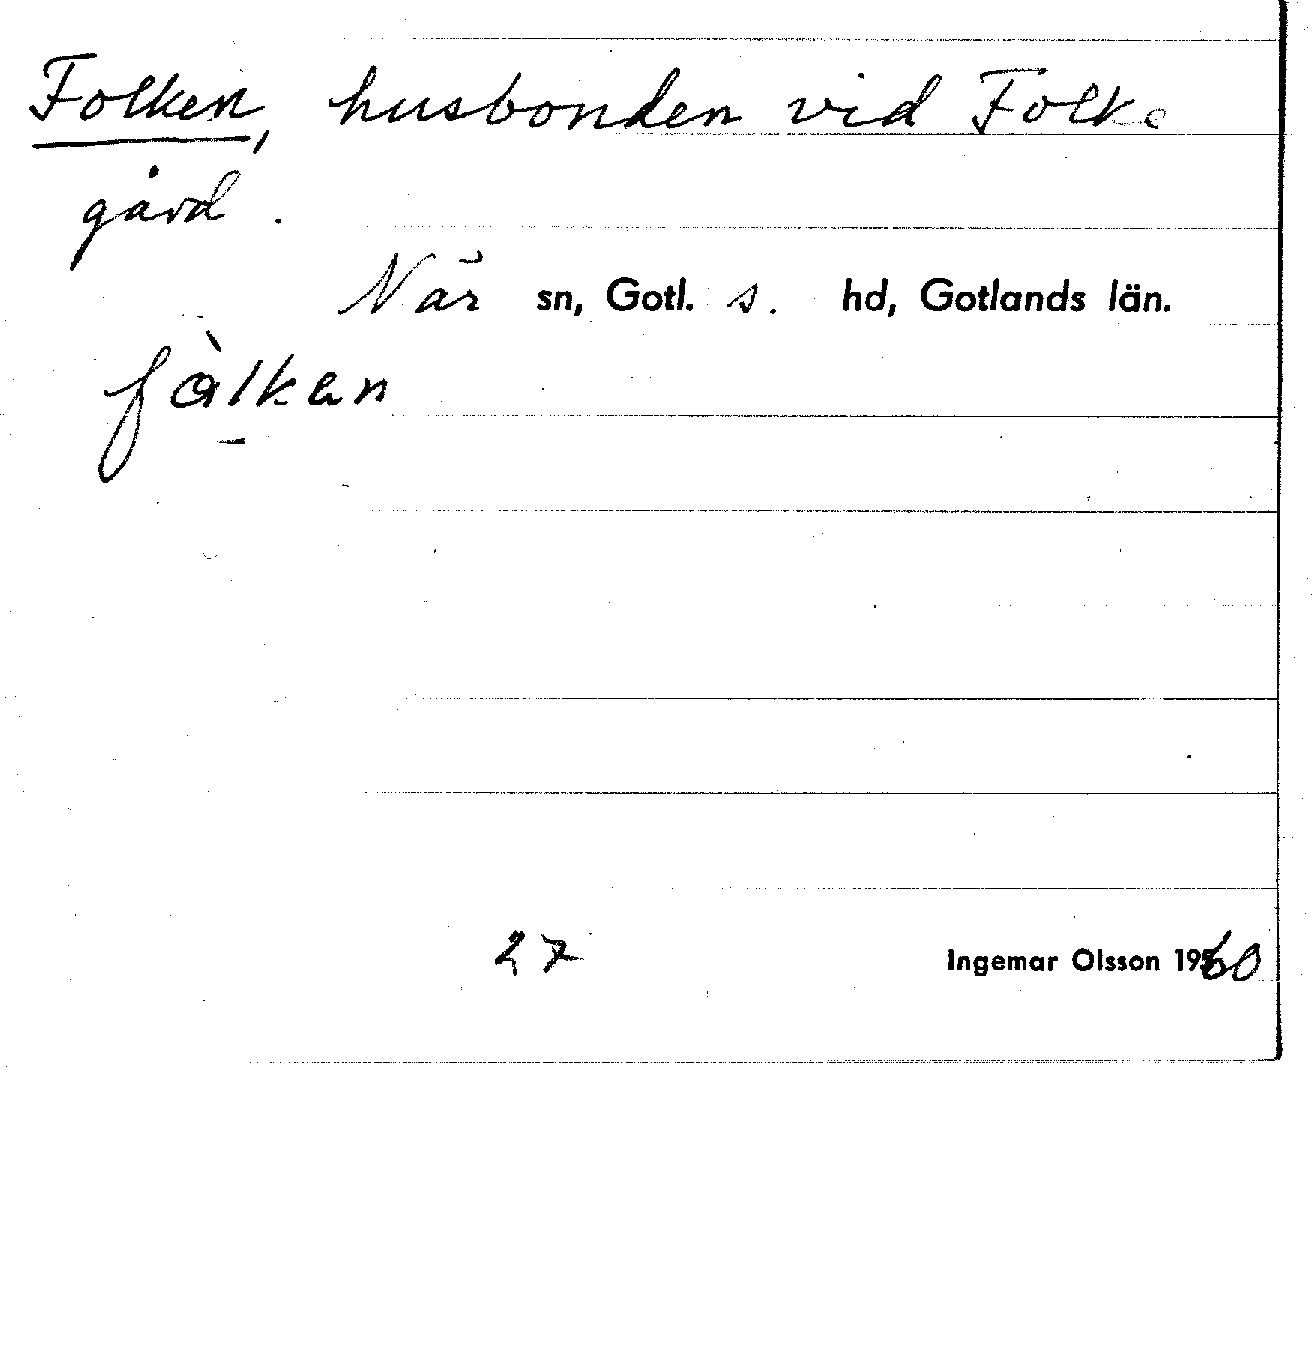 Folken, husbonden vid Folke
gård.
När sn, Gotl. s. hd, Gotlands län.
fàlkan
27 Ingemar Olsson 1960